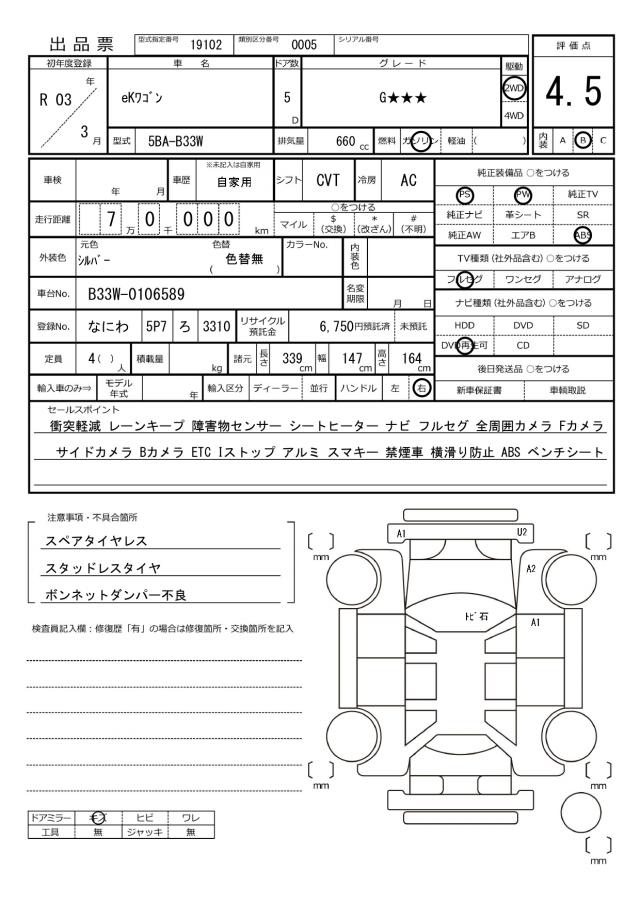 出品票 型式指定番号 19102 類別区分番号 0005 シリアル番号
評価点
4.5
内装 A B C
初年度登録 車名 ドア数 グレード 駆動
R 03 年 3 月
eKワゴン 5 D G★★★ 2WD 4WD
型式 5BA-B33W 排気量 660 cc 燃料 ガソリン 軽油 ( )
車検 年 月 車歴 ※未記入は自家用 自家用 シフト CVT 冷房 AC
走行距離 7 0 万 千 0 0 0 km
○をつける
マイル $ (交換) * (改ざん) # (不明)
外装色 元色 シルバー 色替 ( 色替無 ) カラーNo. 内装色
車台No. B33W-0106589 名変期限 月 日
登録No. なにわ 5P7 ろ 3310 リサイクル預託金 6,750円預託済 未預託
定員 4 ( ) 人 積載量 kg 諸元 長さ 339 cm 幅 147 cm 高さ 164 cm
輸入車のみ⇒ モデル年式 年 輸入区分 ディーラー 並行 ハンドル 左 右
純正装備品 ○をつける
PS PW 純正TV
純正ナビ 革シート SR
純正AW エアB ABS
TV種類 (社外品含む) ○をつける
フルセグ ワンセグ アナログ
ナビ種類 (社外品含む) ○をつける
HDD DVD SD
DVD再生可 CD
後日発送品 ○をつける
新車保証書 車輌取説
セールスポイント
衝突軽減 レーンキープ 障害物センサー シートヒーター ナビ フルセグ 全周囲カメラ Fカメラ
サイドカメラ Bカメラ ETC Iストップ アルミ スマキー 禁煙車 横滑り防止 ABS ベンチシート
注意事項・不具合箇所
スペアタイヤレス
スタッドレスタイヤ
ボンネットダンパー不良
検査員記入欄：修復歴「有」の場合は修復箇所・交換箇所を記入
ドアミラー キズ ヒビ ワレ
工具 無 ジャッキ 無
A1 U2
A2
トビ石 A1
mm mm
mm mm
mm